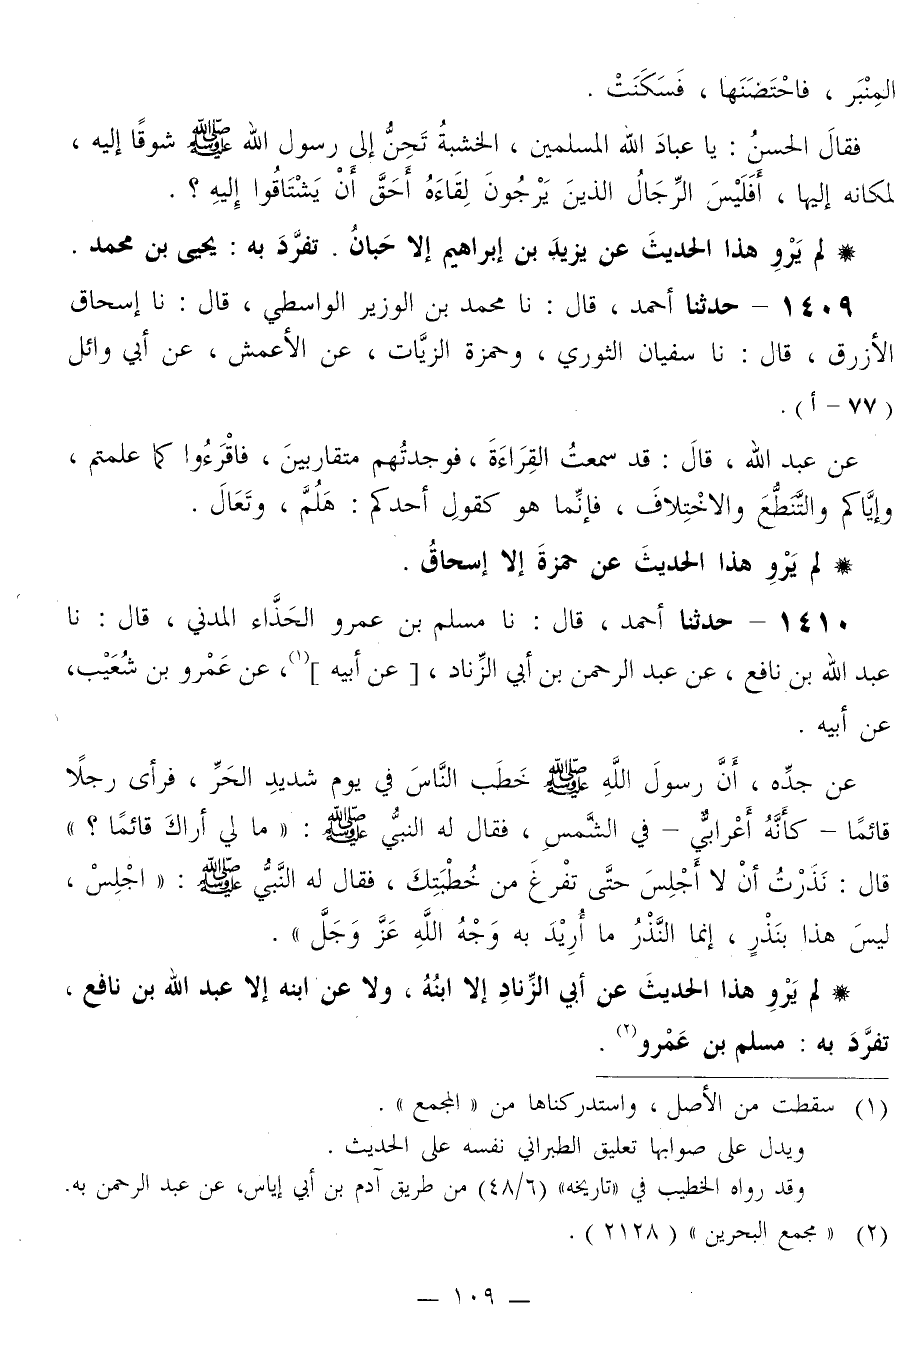 المِنْبَرِ ، فاحْتَضَنَها ، فَسَكَنَتْ .
فقالَ الحسنُ : يا عبادَ الله المسلمين ، الخشبةُ تَحِنُّ إلى رسول الله ﷺ شوقًا إليه ،
لمكانه إليها ، أَفَلَيْسَ الرِّجَالُ الذينَ يَرْجُونَ لِقَاءَهُ أَحَقَّ أَنْ يَشْتَاقُوا إِليهِ ؟ .
* لم يَرْوِ هذا الحديثَ عن يزيدَ بن إبراهيم إلا حَبانُ . تفرَّدَ به : يحيى بن محمد .
١٤٠٩ – حدثنا أحمد ، قال : نا محمد بن الوزير الواسطي ، قال : نا إسحاق
الأزرق ، قال : نا سفيان الثوري ، وحمزة الزيَّات ، عن الأعمش ، عن أبي وائل
( ٧٧ – أ ) .
عن عبد الله ، قالَ : قد سمعتُ القِرَاءَةَ ، فوجدتُهم متقاربينَ ، فاقْرَءُوا كما علمتم ،
وإيَّاكم والتَّنَطُّعَ والاخْتِلافَ ، فإنَّما هو كقولِ أحدكم : هَلُمَّ ، وتَعَالَ .
* لم يَرْوِ هذا الحديثَ عن حمزةَ إلا إسحاقُ .
١٤١٠ – حدثنا أحمد ، قال : نا مسلم بن عمرو الحَذَّاء المدني ، قال : نا
عبد الله بن نافع ، عن عبد الرحمن بن أبي الزِّناد ، [ عن أبيه ](١)، عن عَمْرو بن شُعَيْب،
عن أبيه .
عن جدِّه ، أَنَّ رسولَ اللَّهِ ﷺ خَطَب النَّاسَ في يوم شديدِ الحَرِّ ، فرأى رجلًا
قائمًا – كأنَّهُ أَعْرابيٌّ – في الشَّمسِ ، فقال له النبيُّ ﷺ : « ما لي أراكَ قائمًا ؟ »
قال : نَذَرْتُ أنْ لا أَجْلِسَ حتَّى تفْرغَ من خُطْبَتِكَ ، فقال له النَّبيُّ ﷺ : « اجْلِسْ ،
ليسَ هذا بنَذْرٍ ، إنما النَّذْرُ ما أُرِيْدَ به وَجْهُ اللَّهِ عَزَّ وَجَلَّ » .
* لم يَرْوِ هذا الحديثَ عن أبي الزِّنادِ إلا ابنُهُ ، ولا عن ابنه إلا عبد الله بن نافع ،
تفرَّدَ به : مسلم بن عَمْرو(٢) .
(١) سقطت من الأصل ، واستدركناها من « المجمع » .
ويدل على صوابها تعليق الطبراني نفسه على الحديث .
وقد رواه الخطيب في «تاريخه» (٤٨/٦) من طريق آدم بن أبي إياس، عن عبد الرحمن به.
(٢) « مجمع البحرين » ( ٢١٢٨ ) .
– ١٠٩ –